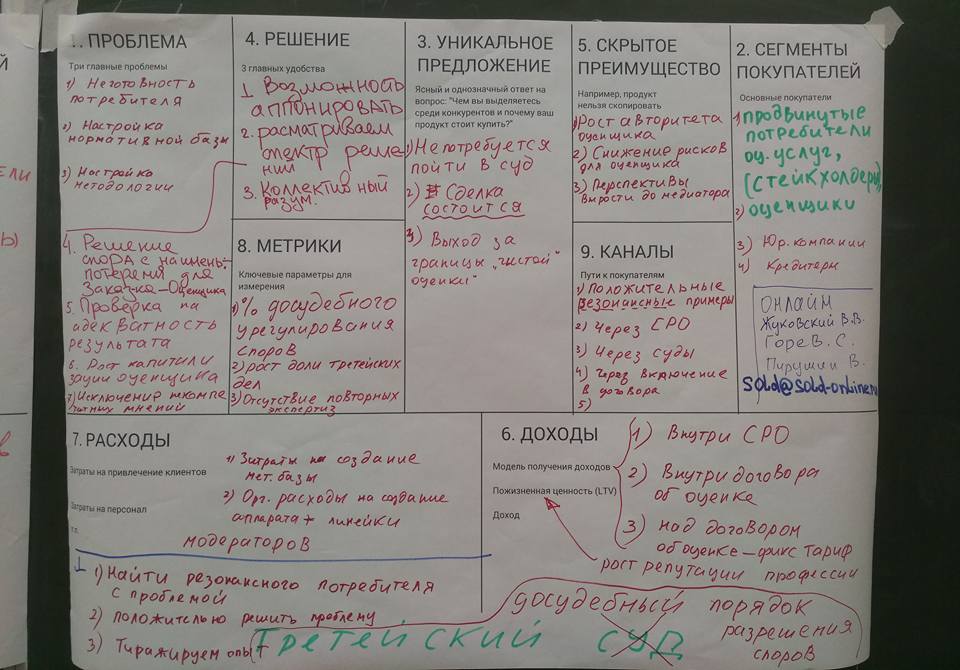 1. ПРОБЛЕМА
Три главные проблемы
1) Неготовность
потребителя
2) Настройка
нормативной базы
3) Настройка
методологии
4. РЕШЕНИЕ
3 главных удобства
1 Возможность
аппонировать
2. расматриваем
спектр реше
ний
3. Коллективный
разум.
4. Решение
спора с наимень-
потерями для
Заказка-Оценщика
5. Проверка на
адекватность
результата
6. Рост капитили
зации оценщика
7) Исключения некомпе
татных мнений
3. УНИКАЛЬНОЕ
ПРЕДЛОЖЕНИЕ
Ясный и однозначный ответ на
вопрос: "Чем вы выделяетесь
среди конкурентов и почему ваш
продукт стоит купить?"
1) Не потребуется
пойти в суд
2) Сделка
состоится
3) Выход за
границы "чистой"
оценки"
5. СКРЫТОЕ
ПРЕИМУЩЕСТВО
Например, продукт
нельзя скопировать
1) Рост авторитета
оценщика
2) Снижение рисков
для оценщика
3) Перспективы
вырости до медиатора
2. СЕГМЕНТЫ
ПОКУПАТЕЛЕЙ
Основные покупатели
1) продвинутые
потребители
оц. услуг,
(стейкхолдеры),
2) оценщики
3) Юр. компании
4) Кредиторы
ОНЛАЙМ
Жуковский В.В.
Горев. С.
Пирушин В.
sold@sold-online.ru
8. МЕТРИКИ
Ключевые параметры для
измерения
1) % досудебного
урегулирования
споров
2) рост доли третейских
дел
3) Отсутствие повторных
экспертиз
9. КАНАЛЫ
Пути к покупателям
1) Положительные
резонансные примеры
2) Через СРО
3) Через суды
4) Через включение
в договора
5)
7. РАСХОДЫ
Затраты на привлечение клиентов
Затраты на персонал
1) Затраты на создание
мет. базы
2) Орг. расходы на создание
аппарата + линейки
модераторов
6. ДОХОДЫ
Модель получения доходов
Пожизненная ценность (LTV)
Доход
1) Внутри СРО
2) Внутри договора
об оценке
3) над договором
об оценке – фикс тариф
рост репутации профессии
1) Найти резонансного потребителя
с проблемой
2) положительно решить проблему
3) Тиражируем опыт
ТРЕТЕЙСКИЙ СУД
досудебный порядок
разрешения
споров